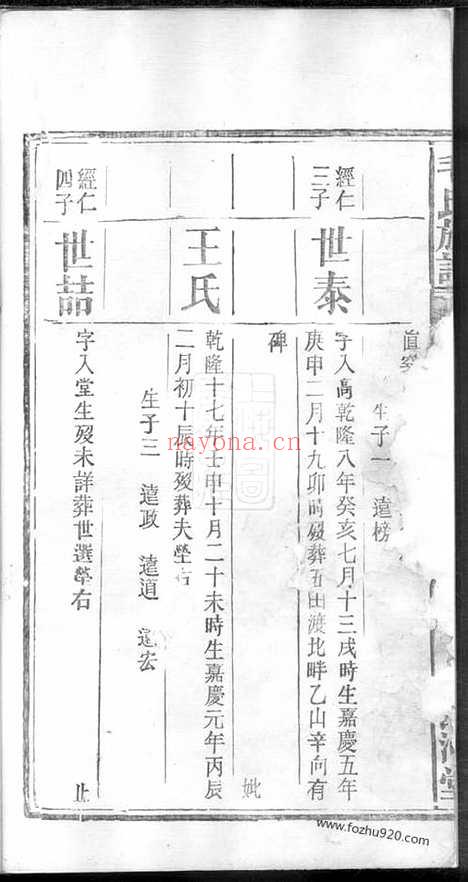 毛氏族譜
生子一 遠榜
經仁三子
世泰
字入高乾隆八年癸亥七月十三戌時生嘉慶五年
庚申二月十九卯時歿葬石田渡北畔乙山辛向有
碑
妣
王氏
乾隆十七年壬申十月二十未時生嘉慶元年丙辰
二月初十辰時歿葬夫塋右
生子三 遠政 遠道 遠宏
經仁四子
世喆
字入堂生歿未詳葬世選塋右
止
nayona.cn
www.fozhu920.com